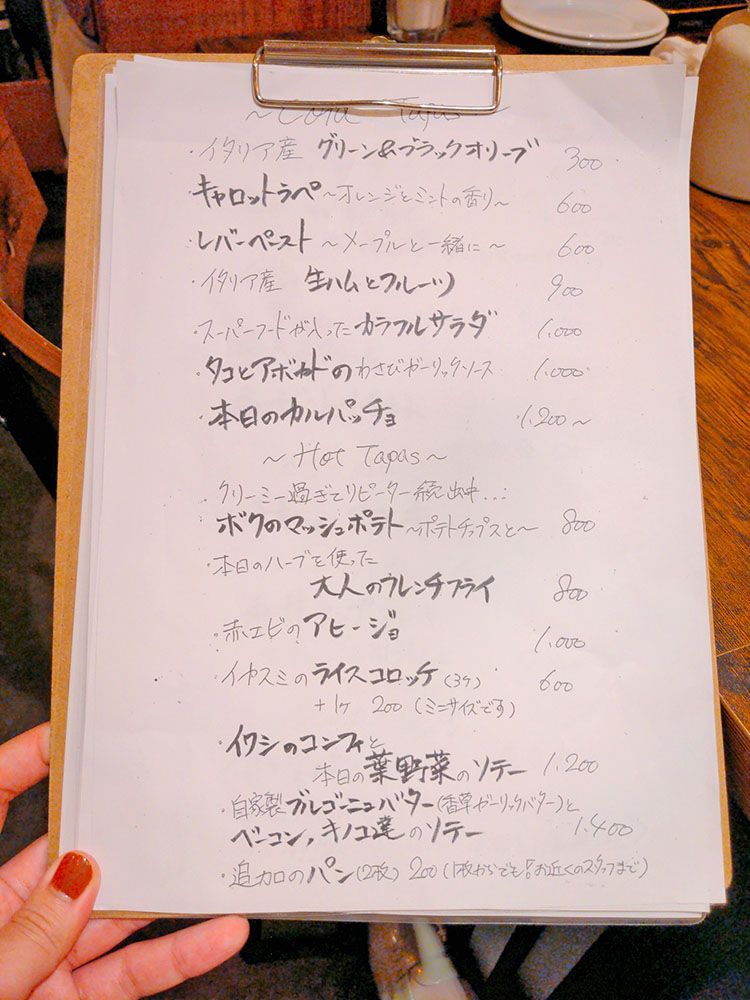 ~ Cold Tapas ~
・イタリア産 グリーン&ブラックオリーブ 300
キャロットラペ ~オレンジとミントの香り~ 600
レバーペースト ~メープルと一緒に~ 600
・イタリア産 生ハムとフルーツ 900
・スーパーフードが入った カラフルサラダ 1.000
・タコとアボカドの わさびガーリックソース 1.000
・本日のカルパッチョ 1.200~
~ Hot Tapas ~
・クリーミー過ぎてリピーター続出中...!
ボクのマッシュポテト ~ポテトチップスと~ 800
・本日のハーブを使った
大人のフレンチフライ 800
・赤エビの アヒージョ 1.000
・イカスミの ライスコロッケ (3ケ) 600
+1ケ 200 (ミニサイズです)
・イワシのコンフィと
本日の葉野菜のソテー 1.200
・自家製 ブルゴーニュバター (香草ガーリックバター)と
ベーコン, キノコ達のソテー 1.400
・追加のパン (2枚) 200 (1枚からでも!お近くのスタッフまで)